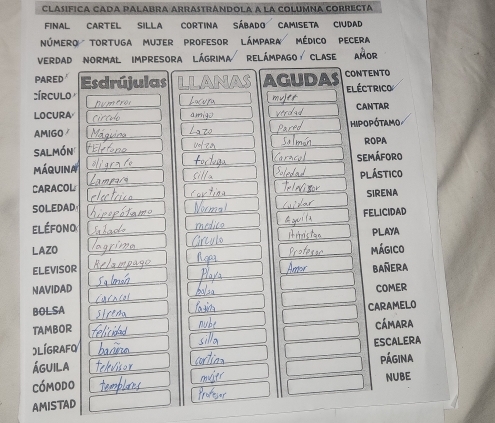 CLASIFICA CADA PALABRA ARRASTRÁNDOLA A LA COLUMNA CORRECTA
FINAL CARTEL SILLA CORTINA SÁBADO CAMISETA CIUDAD
NÚMERO TORTUGA MUJER PROFESOR LÁMPARA MÉDICO PECERA
VERDAD NORMAL IMPRESORA LÁGRIMA RELÁMPAGO CLASE AMOR
PARED
CÍRCULO
LOCURA
AMIGO
SALMÓN
MÁQUINA
CARACOL
SOLEDAD
ELÉFONO
LAZO
ELEVISOR
NAVIDAD
BOLSA
TAMBOR
OLÍGRAFO
ÁGUILA
CÓMODO
AMISTAD
Esdrújulas
numeros
circulo
Máquina
Lampara
electrico
hipopótamo
Sabado
lagrima
Relampago
Salmón
caracol
sirena
felicidad
bañera
televisor
LLANAS
Locura
amigo
Lazo
tortuga
silla
cortina
Normal
medico
Circulo
Ropa
Playa
bolsa
Pagina
nube
silla
cortina
mujer
Profesor
AGUDAS
mujer
verdad
Pared
Salmón
Caracol
Soledad
Televisor
Aguila
Profesor
Amor
CONTENTO
ELÉCTRICO
CANTAR
HIPOPÓTAMO
ROPA
SEMÁFORO
PLÁSTICO
SIRENA
FELICIDAD
PLAYA
MÁGICO
BAÑERA
COMER
CARAMELO
CÁMARA
ESCALERA
PÁGINA
NUBE